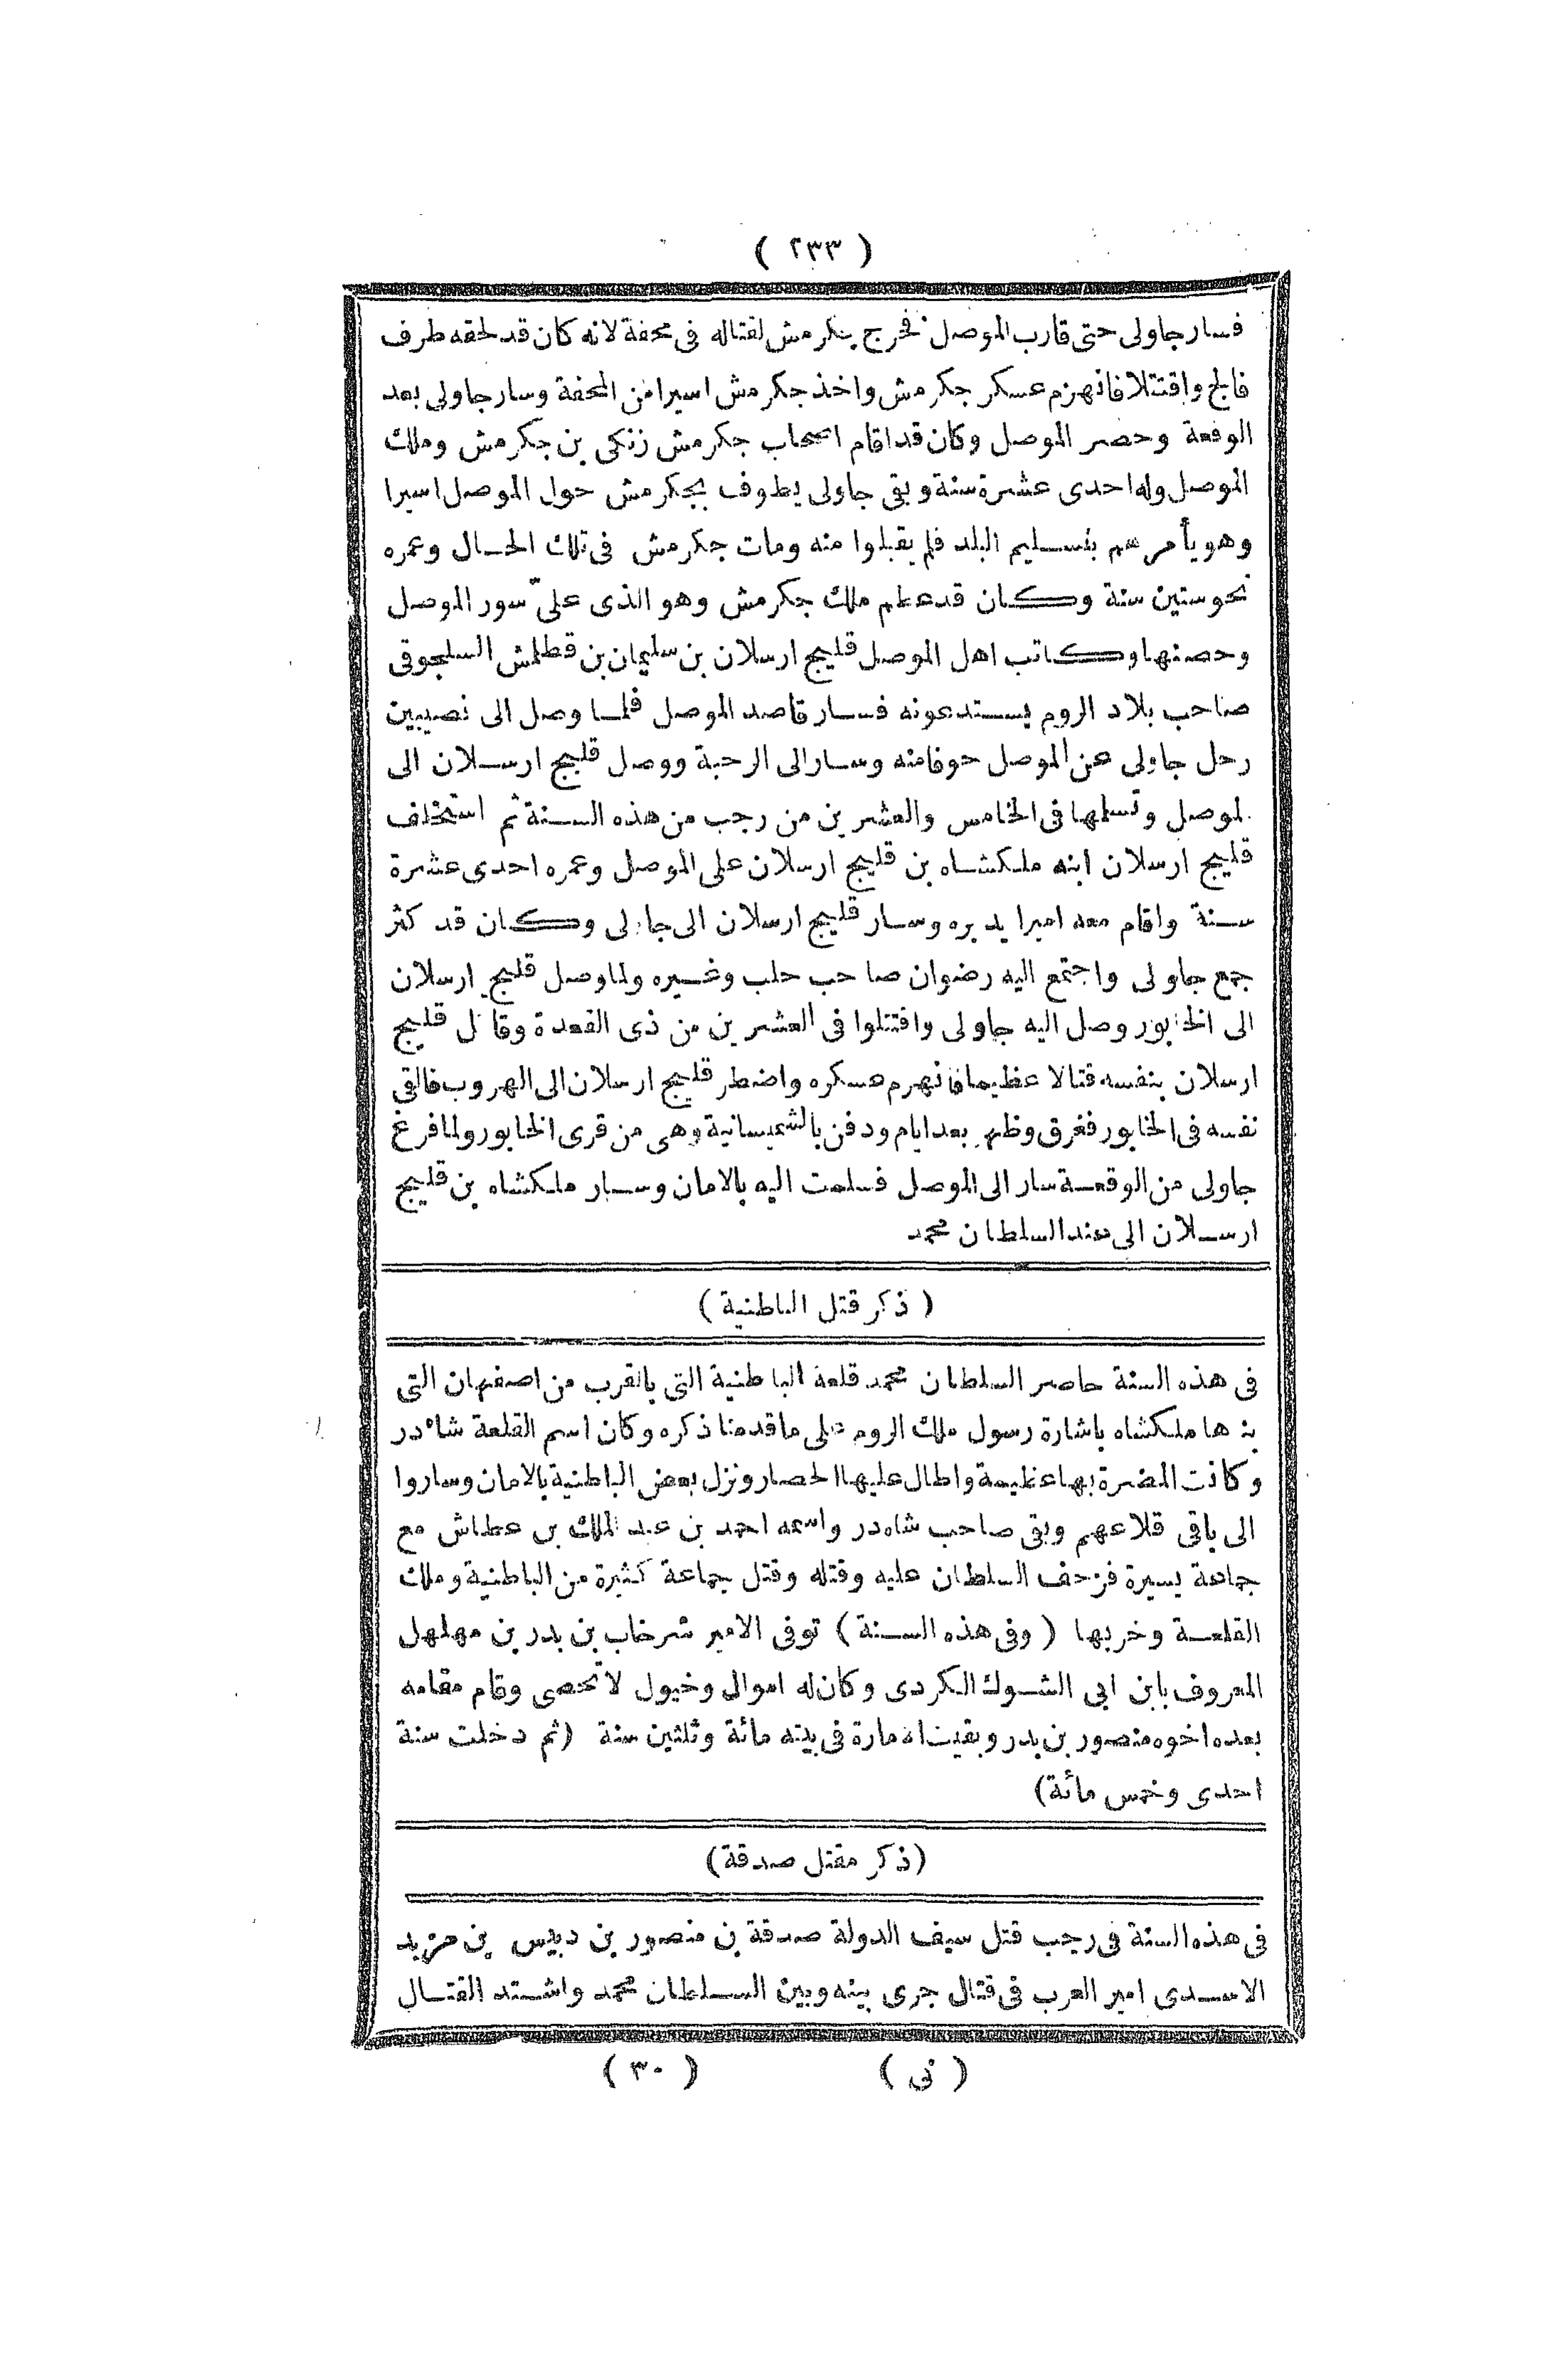 ( ٢٣٣ )
فسار جاولى حتى قارب الموصل فخرج جكرمش لقتاله فى محفة لانه كان قد لحقه طرف
فالج واقتتلا فانهزم عسكر جكرمش واخذ جكرمش اسيرا من المحفة وسار جاولى بعد
الوقعة وحصر الموصل وكان قد اقام اصحاب جكرمش زنكى بن جكرمش وملك
الموصل وله احدى عشرة سنة وبقى جاولى يطوف بجكرمش حول الموصل اسيرا
وهو يأمرهم بتسليم البلد فلم يقبلوا منه ومات جكرمش فى تلك الحال وعمره
نحو ستين سنة وكان قد عظم ملك جكرمش وهو الذى علىّ سور الموصل
وحصنها وكاتب اهل الموصل قليج ارسلان بن سليمان بن قطلمش السلجوقى
صاحب بلاد الروم يستدعونه فسار قاصد الموصل فلما وصل الى نصيبين
رحل جاولى عن الموصل خوفا منه وسار الى الرحبة ووصل قليج ارسلان الى
الموصل وتسلمها فى الخامس والعشرين من رجب من هذه السنة ثم استخلف
قليج ارسلان ابنه ملكشاه بن قليج ارسلان على الموصل وعمره احدى عشرة
سنة واقام معه اميرا يدبره وسار قليج ارسلان الى جاولى وكان قد كثر
جمع جاولى واجتمع اليه رضوان صاحب حلب وغيره ولما وصل قليج ارسلان
الى الخابور وصل اليه جاولى واقتتلوا فى العشرين من ذى القعدة وقاتل قليج
ارسلان بنفسه قتالا عظيما فانهزم عسكره واضطر قليج ارسلان الى الهروب فالقى
نفسه فى الخابور فغرق وظهر بعد ايام ودفن بالشميسانية وهى من قرى الخابور ولما فرغ
جاولى من الوقعة سار الى الموصل فسلمت اليه بالامان وسار ملكشاه بن قليج
ارسلان الى عند السلطان محمد
( ذكر قتل الباطنية )
فى هذه السنة حاصر السلطان محمد قلعة الباطنية التى بالقرب من اصفهان التى
بناها ملكشاه باشارة رسول ملك الروم على ما قدمنا ذكره وكان اسم القلعة شاهدر
وكانت المضرة بها عظيمة واطال عليها الحصار ونزل بعض الباطنية بالامان وساروا
الى باقى قلاعهم وبقى صاحب شاهدر واسمه احمد بن عبد الملك بن عطاش مع
جماعة يسيرة فزحف السلطان عليه وقتله وقتل جماعة كثيرة من الباطنية وملك
القلعة وخربها ( وفى هذه السنة ) توفى الامير شرخاب بن بدر بن مهلهل
المعروف بابن ابى الشوك الكردى وكان له اموال وخيول لا تحصى وقام مقامه
بعده اخوه منصور بن بدر وبقيت الامارة فى بيته مائة وثلثين سنة (ثم دخلت سنة
احدى وخمس مائة)
(ذكر مقتل صدقة)
فى هذه السنة فى رجب قتل سيف الدولة صدقة بن منصور بن دبيس بن مزيد
الاسدى امير العرب فى قتال جرى بينه وبين السلطان محمد واشتد القتال
( نى ) ( ٣٠ )